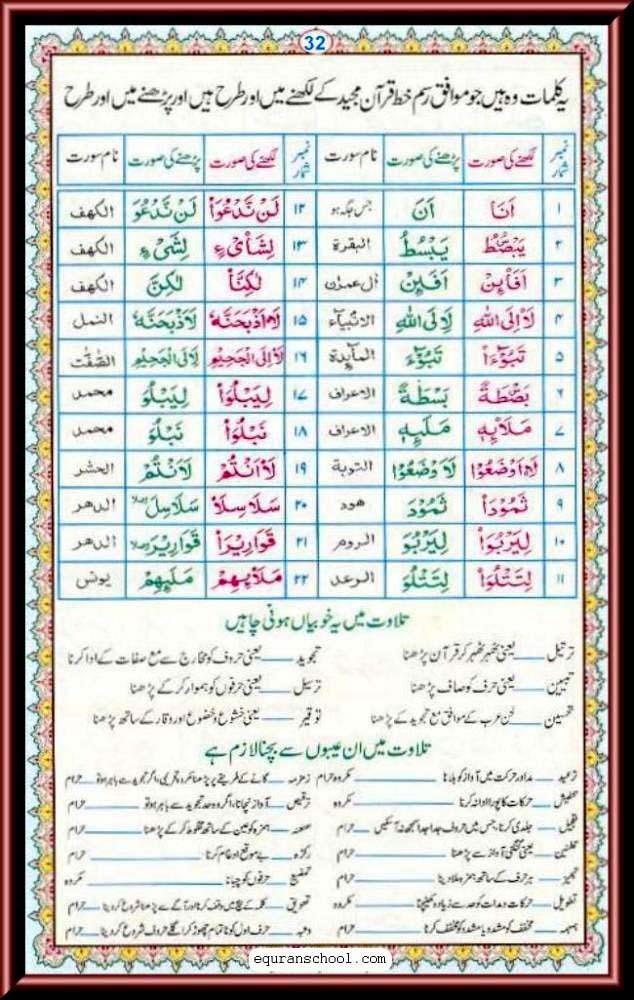 32
یہ کلمات وہ ہیں جو موافق رسم خط قرآن مجید کے لکھنے میں اور طرح ہیں اور پڑھنے میں اور طرح
نمبر شمار لکھنے کی صورت پڑھنے کی صورت نام سورت نمبر شمار لکھنے کی صورت پڑھنے کی صورت نام سورت
۱ اَنَا اَنَ جس جگہ ہو ۱۲ لَنْ نَّدْعُوَا۟ لَنْ نَّدْعُوَ الکهف
۲ يَبْصُۜطُ يَبْسُطُ البقرة ۱۳ لِشَا۟یْءٍ لِشَیْءٍ الکهف
۳ اَفَا۟ئِنْ اَفَئِنْ اٰل عمرٰن ۱۴ لٰكِنَّا۟ لٰكِنَّ الکهف
۴ لَا۟اِلَى اللّٰهِ لَاِلَى اللّٰهِ الانبیآء ۱۵ لَا۟اَذْبَحَنَّهٗ لَاَذْبَحَنَّهٗ النمل
۵ تَبُوْٓءَا۟ تَبُوْٓءَ المآىِٕدة ۱۶ لَا۟اِلَى الْجَحِيْمِ لَاِلَى الْجَحِيْمِ الصّٰفّٰت
۶ بَصْۜطَةً بَسْطَةً الاعراف ۱۷ لِيَبْلُوَا۟ لِيَبْلُوَ محمد
۷ مَلَا۟ئِهٖ مَلَئِهٖ الاعراف ۱۸ نَبْلُوَا۟ نَبْلُوَ محمد
۸ لَا۟اَوْضَعُوْا لَاَوْضَعُوْا التوبة ۱۹ لَا۟اَنْتُمْ لَاَنْتُمْ الحشر
۹ ثَمُوْدَا۟ ثَمُوْدَ هود ۲۰ سَلَاسِلَا۟ سَلَاسِلَ الدهر
۱۰ لِيَرْبُوَا۟ لِيَرْبُوَ الروم ۲۱ قَوَارِيْرَا۟ قَوَارِيْرَ الدهر
۱۱ لِتَتْلُوَا۟ لِتَتْلُوَ الرعد ۲۲ مَلَا۟ئِهِمْ مَلَئِهِمْ یونس
تلاوت میں یہ خوبیاں ہونی چاہیں
ترتیل یعنی ٹھہر ٹھہر کر قرآن پڑھنا تجوید یعنی حروف کو مخارج سے مع صفات کے ادا کرنا
تبیین یعنی حرف کو صاف پڑھنا ترسیل یعنی حرفوں کو ہموار کر کے پڑھنا
تحسین لحن عرب کے موافق مع تجوید کے پڑھنا توقیر یعنی خشوع و خضوع اور وقار کے ساتھ پڑھنا
تلاوت میں ان عیبوں سے بچنا لازم ہے
ترعید مد اور حرکت میں آواز کو ہلانا مکروہ حرام زمزمہ گانے کے طریقے پر پڑھنا حرام
حرکات کا پورا ادا نہ کرنا مکروہ ترقیص آواز نچانا، اگر وہ حد تجوید سے باہر ہو تو حرام
جلدی کرنا، جس میں حروف جدا جدا سمجھ نہ آسکیں حرام ہمزہ کو عین کے ساتھ مخلوط کر کے پڑھنا حرام
یعنی گنگنی آواز سے پڑھنا حرام بے موقع ادغام کرنا حرام
ہر حرف کے ساتھ ہمزہ ملا دینا حرام حرفوں کو چبانا مکروہ
تطویل حرکات و مدات کو حد سے زیادہ کھینچنا حرام تعویق کلمہ کے بیچ میں وقف کرنا اور آگے سے پڑھنا شروع کر دینا حرام
ہمہمہ مخفف کو مشدد یا مشدد کو مخفف کرنا حرام حرف اول کو ناتمام چھوڑ کر اگلے حروف شروع کر دینا حرام
equranschool.com